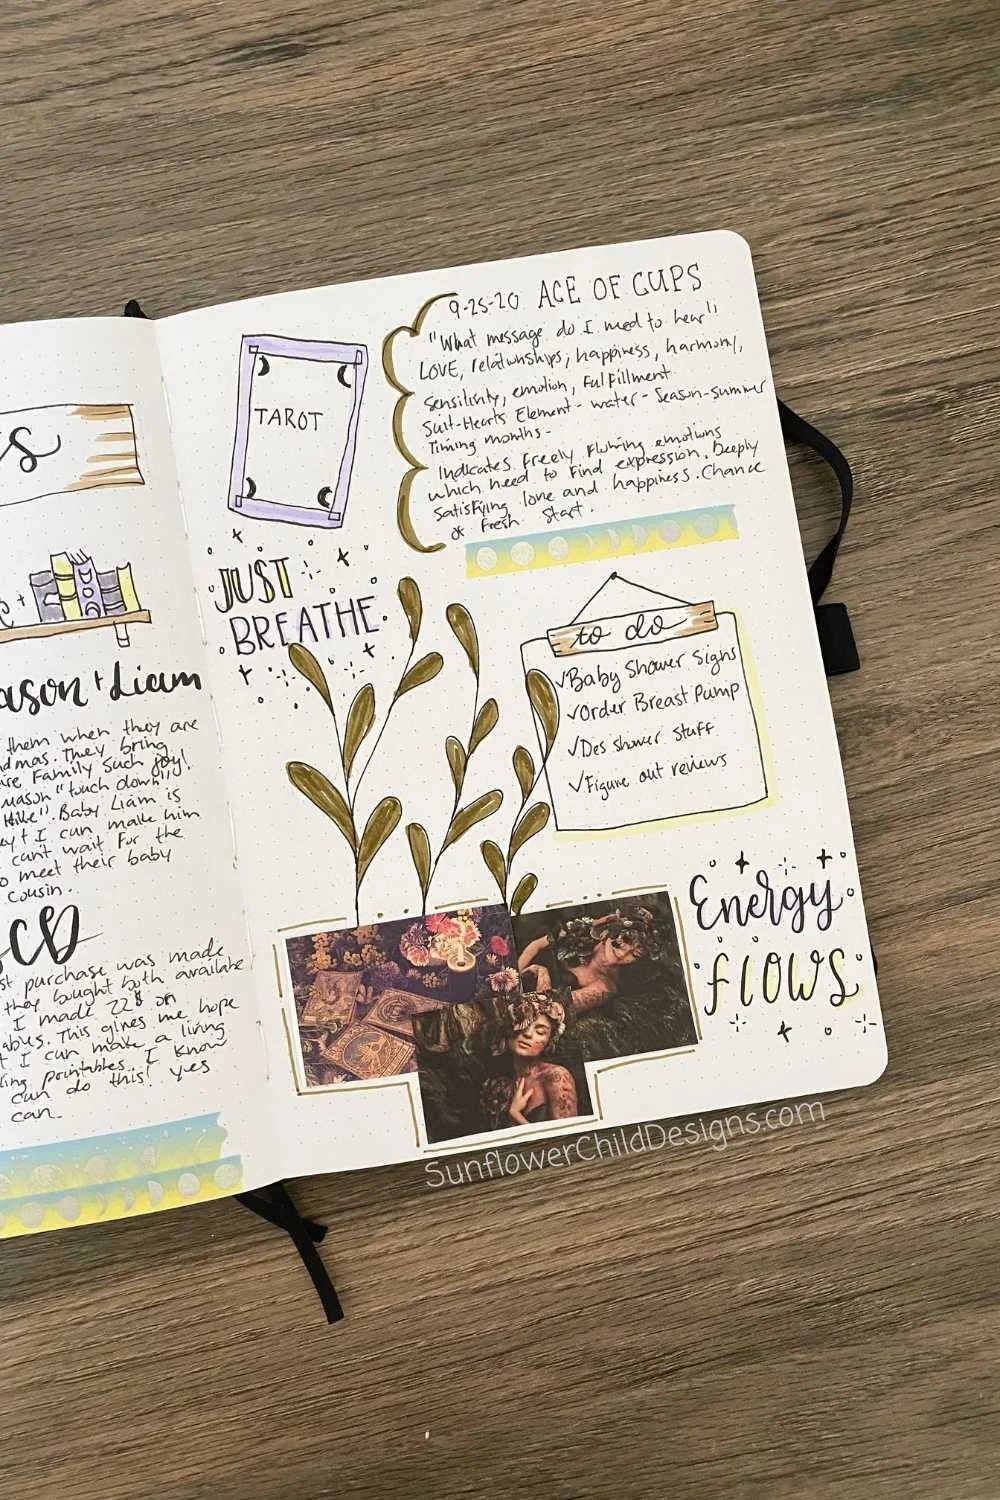 s
+
ason + Liam
them when they are
dmas. They bring
are Family such joy!
mason "touch down"
Hike". Baby Liam is
I can make him
can't wait for the
o meet their baby
cousin.
CD
st purchase was made
they bought both available
I made 22$ on
This gives me hope
t I can make a living
ing printables. I know
can do this! yes
can.
TAROT
JUST
BREATHE
9-25-20 ACE OF CUPS
"What message do I need to hear"
LOVE, relationships, happiness, harmony,
Sensitivity, emotion, Fulfillment
Suit-Hearts Element - water - Season-summer
Timing months-
Indicates freely flowing emotions
which need to find expression. Deeply
Satisfying love and happiness. Chance
of fresh start.
to do
✓Baby Shower Signs
✓Order Breast Pump
✓Des shower stuff
✓Figure out reviews
Energy
flows
SunflowerChildDesigns.com